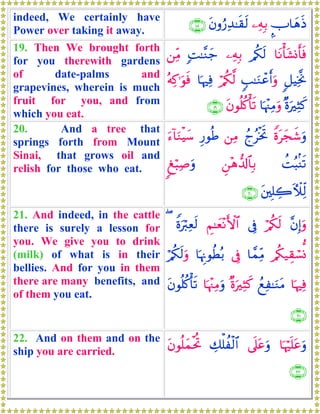 indeed, We certainly have
Power over taking it away.
ذَهَابٍۭ بِهِۦ لَقَٰدِرُونَ ﴿١٨﴾
19. Then We brought forth
for you therewith gardens
of date-palms and
grapevines, wherein is much
fruit for you, and from
which you eat.
فَأَنشَأْنَا لَكُم بِهِۦ جَنَّٰتٍ مِّن
نَّخِيلٍ وَأَعْنَٰبٍ لَّكُمْ فِيهَا فَوَٰكِهُ
كَثِيرَةٌ وَمِنْهَا تَأْكُلُونَ ﴿١٩﴾
20. And a tree that
springs forth from Mount
Sinai, that grows oil and
relish for those who eat.
وَشَجَرَةً تَخْرُجُ مِن طُورِ سَيْنَآءَ
تَنۢبُتُ بِٱلدُّهْنِ وَصِبْغٍ
لِّلْءَاكِلِينَ ﴿٢٠﴾
21. And indeed, in the cattle
there is surely a lesson for
you. We give you to drink
(milk) of what is in their
bellies. And for you in them
there are many benefits, and
of them you eat.
وَإِنَّ لَكُمْ فِى ٱلْأَنْعَٰمِ لَعِبْرَةً ۖ
نُّسْقِيكُم مِّمَّا فِى بُطُونِهَا وَلَكُمْ
فِيهَا مَنَٰفِعُ كَثِيرَةٌ وَمِنْهَا تَأْكُلُونَ
﴿٢١﴾
22. And on them and on the
ship you are carried.
وَعَلَيْهَا وَعَلَى ٱلْفُلْكِ تُحْمَلُونَ
﴿٢٢﴾